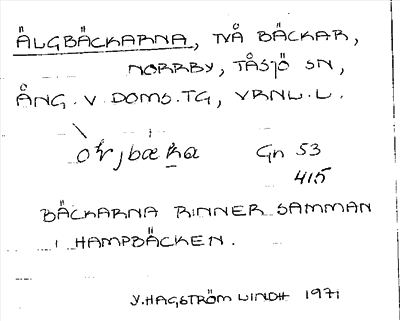 ÄLGBÄCKARNA, TVÅ BÄCKAR,
NORRBY, TÅSJÖ SN,
ÅNG. V. DOMS. TG, VRNL. L.
Gn 53
415
BÄCKARNA RINNER SAMMAN
I HAMPBÄCKEN.
Y. HAGSTRÖM LINDH 1971